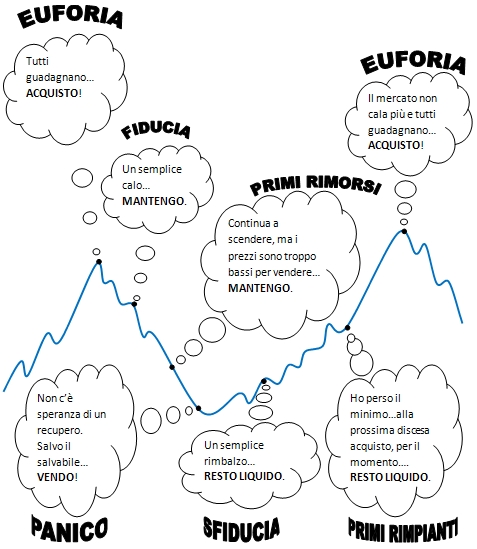 EUFORIA
Tutti
guadagnano...
ACQUISTO!
FIDUCIA
Un semplice
calo...
MANTENGO.
PRIMI RIMORSI
Continua a
scendere, ma i
prezzi sono troppo
bassi per vendere...
MANTENGO.
EUFORIA
Il mercato non
cala più e tutti
guadagnano...
ACQUISTO!
Non c'è
speranza di un
recupero.
Salvo il
salvabile...
VENDO!
PANICO
Un semplice
rimbalzo...
RESTO LIQUIDO.
SFIDUCIA
Ho perso il
minimo...alla
prossima discesa
acquisto, per il
momento....
RESTO LIQUIDO.
PRIMI RIMPIANTI